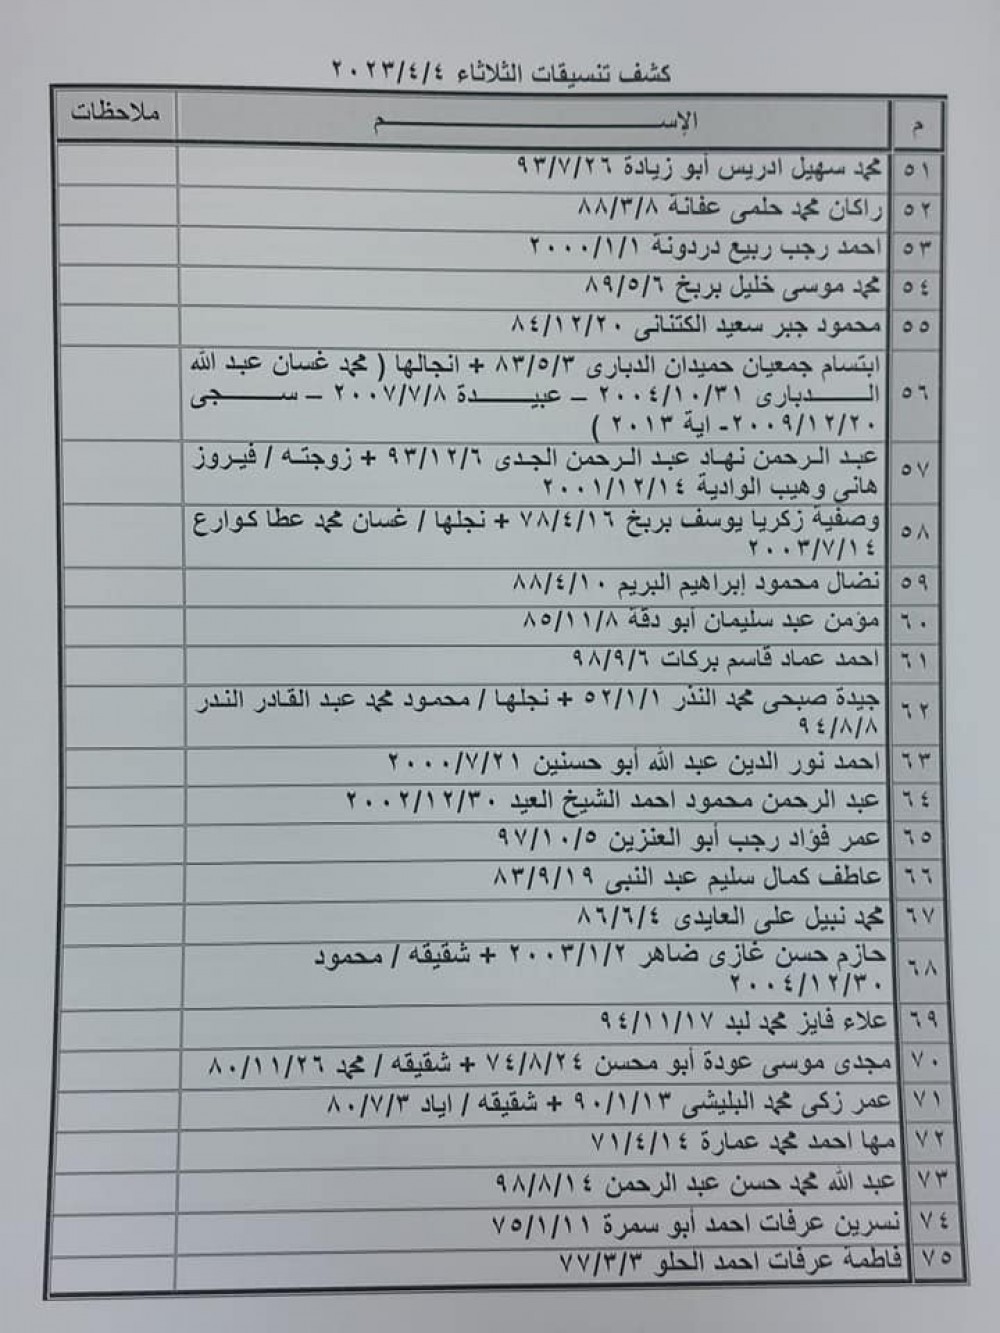 كشف تنسيقات الثلاثاء ٢٠٢٣/٤/٤
م الإســـم ملاحظات
٥١ محمد سهيل ادريس أبو زيادة ٩٣/٧/٢٦
٥٢ راكان محمد حلمى عفانة ٨٨/٣/٨
٥٣ احمد رجب ربيع دردونة ٢٠٠٠/١/١
٥٤ محمد موسى خليل بربخ ٨٩/٥/٦
٥٥ محمود جبر سعيد الكتنانى ٨٤/١٢/٢٠
ابتسام جمعيان حميدان الدبارى ٨٣/٥/٣ + انجالها ( محمد غسان عبد الله
٥٦ الــدبارى ٢٠٠٤/١٠/٣١ – عبيــدة ٢٠٠٧/٧/٨ – ســجى
٢٠٠٩/١٢/٢٠- اية ٢٠١٣ )
٥٧ عبد الرحمن نهاد عبد الرحمن الجدى ٩٣/١٢/٦ + زوجته / فيروز
هانى وهيب الوادية ٢٠٠١/١٢/١٤
٥٨ وصفية زكريا يوسف بربخ ٧٨/٤/١٦ + نجلها / غسان محمد عطا كوارع
٢٠٠٣/٧/١٤
٥٩ نضال محمود إبراهيم البريم ٨٨/٤/١٠
٦٠ مؤمن عبد سليمان أبو دقة ٨٥/١١/٨
٦١ احمد عماد قاسم بركات ٩٨/٩/٦
٦٢ جيدة صبحى محمد النذر ٥٢/١/١ + نجلها / محمود محمد عبد القادر الندر
٩٤/٨/٨
٦٣ احمد نور الدين عبد الله أبو حسنين ٢٠٠٠/٧/٢١
٦٤ عبد الرحمن محمود احمد الشيخ العيد ٢٠٠٢/١٢/٣٠
٦٥ عمر فؤاد رجب أبو العنزين ٩٧/١٠/٥
٦٦ عاطف كمال سليم عبد النبى ٨٣/٩/١٩
٦٧ محمد نبيل على العايدى ٨٦/٦/٤
٦٨ حازم حسن غازى ضاهر ٢٠٠٣/١/٢ + شقيقه / محمود
٢٠٠٤/١٢/٣٠
٦٩ علاء فايز محمد لبد ٩٤/١١/١٧
٧٠ مجدى موسى عودة أبو محسن ٧٤/٨/٢٤ + شقيقه / محمد ٨٠/١١/٢٦
٧١ عمر زكى محمد البليشى ٩٠/١/١٣ + شقيقه / اياد ٨٠/٧/٣
٧٢ مها احمد محمد عمارة ٧١/٤/١٤
٧٣ عبد الله محمد حسن عبد الرحمن ٩٨/٨/١٤
٧٤ نسرين عرفات احمد أبو سمرة ٧٥/١/١١
٧٥ فاطمة عرفات احمد الحلو ٧٧/٣/٣